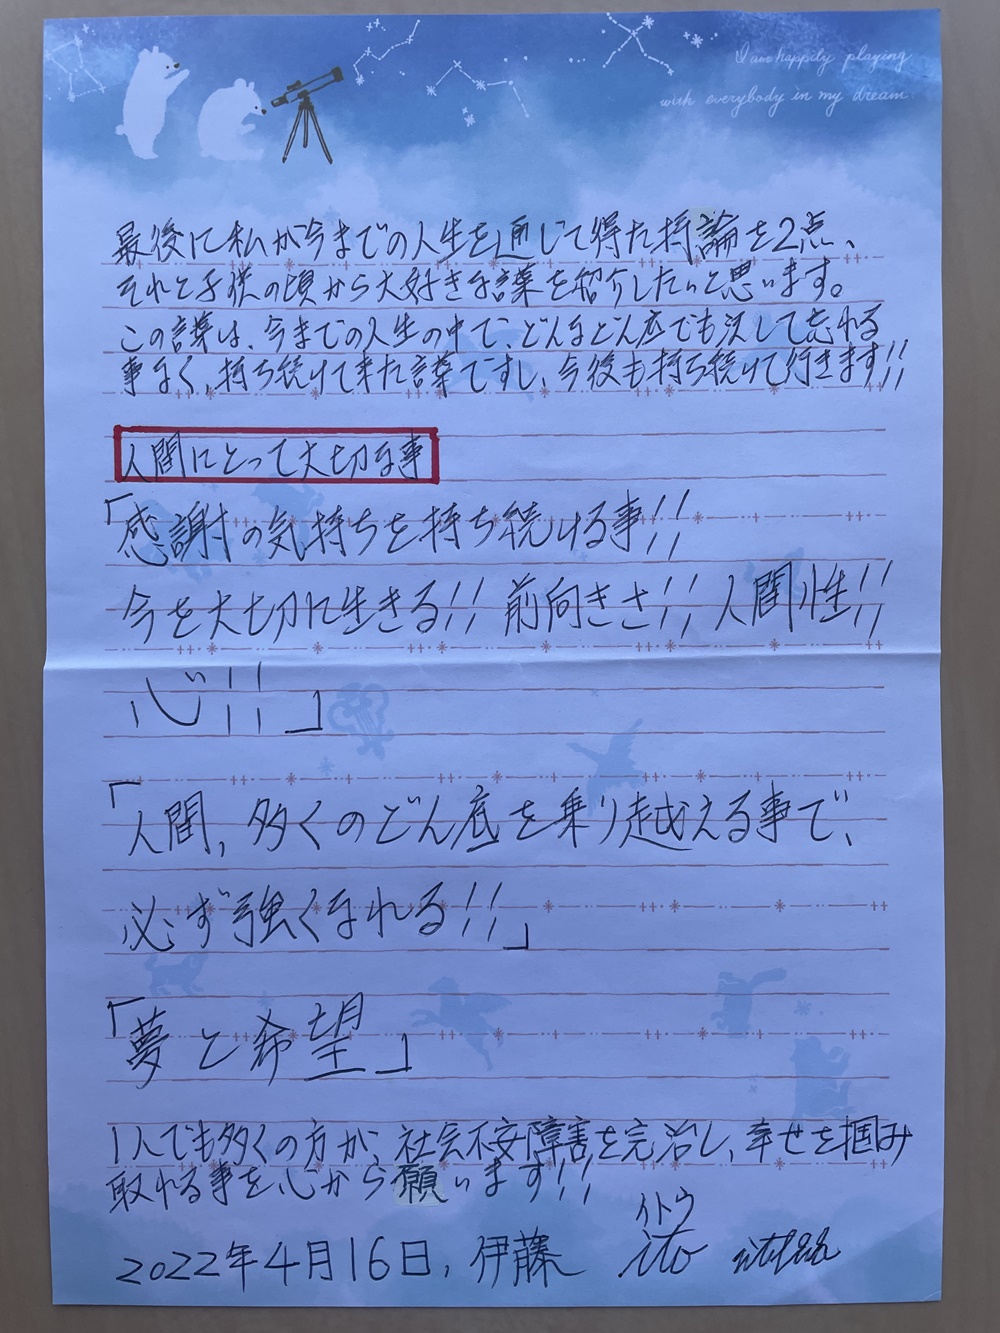 I am happily playing
with everybody in my dream
最後に私が今までの人生を通じて得た持論を2点、
それと子供の頃から大好きな言葉を紹介したいと思います。
この言葉は、今までの人生の中で、どんなどん底でも決して忘れる
事なく、持ち続けて来た言葉ですし、今後も持ち続けて行きます!!
人間にとって大切な事
「感謝の気持ちを持ち続ける事!!
今を大切に生きる!! 前向きさ!! 人間性!!
心!!」
「人間,多くのどん底を乗り越える事で、
必ず強くなれる!!」
「夢と希望」
1人でも多くの方が、社会不安障害を完治し、幸せを掴み
取れる事を心から願います!!
イトウ
2022年4月16日, 伊藤 ito